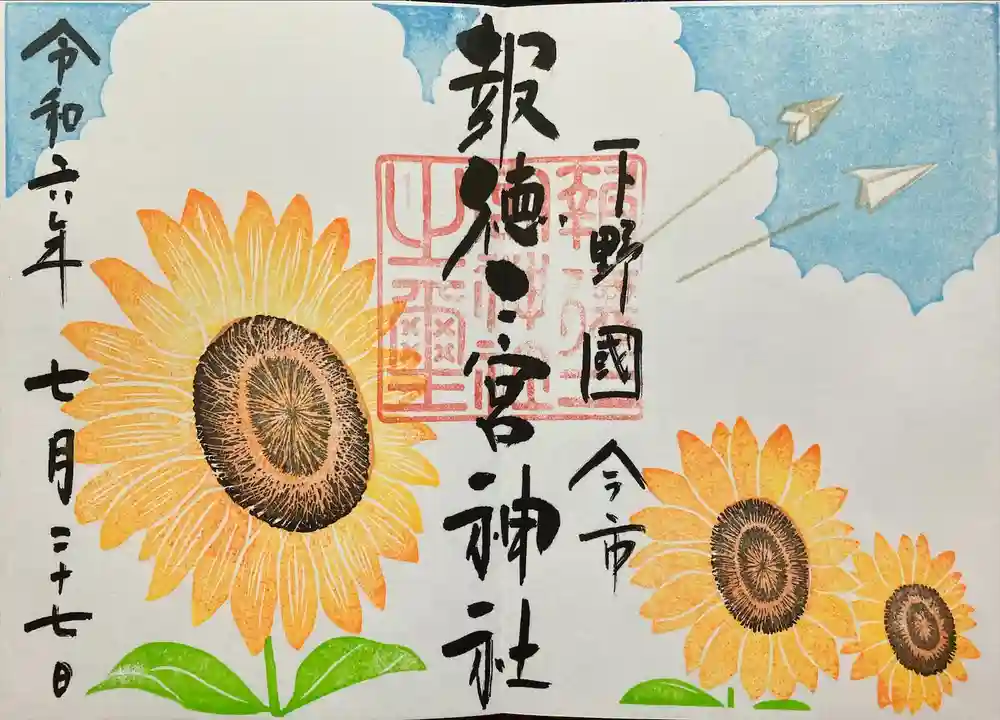 下野國 今市
報徳二宮神社
令和六年 七月二十七日
報徳二宮神社之璽